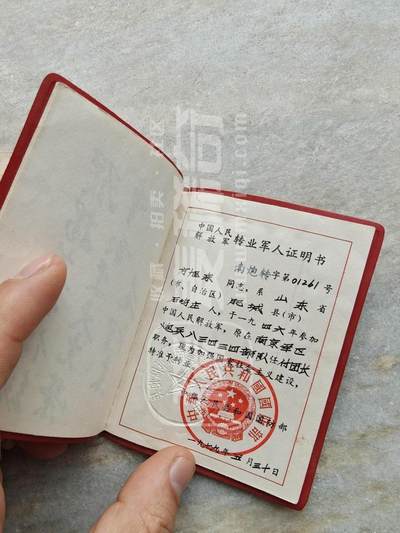 中国人民
解放军 转业军人证明书
南炮转字第01261号
同志，系 山东 省
(市、自治区) 肥城 县(市)
人，于一九四六年参加
中国人民解放军，原在南京军区
八三四三四部队任付团长
职务，现为加强国家社会主义建设，
特准予转业
中华人民共和国国防部
一九七九年五月三十日